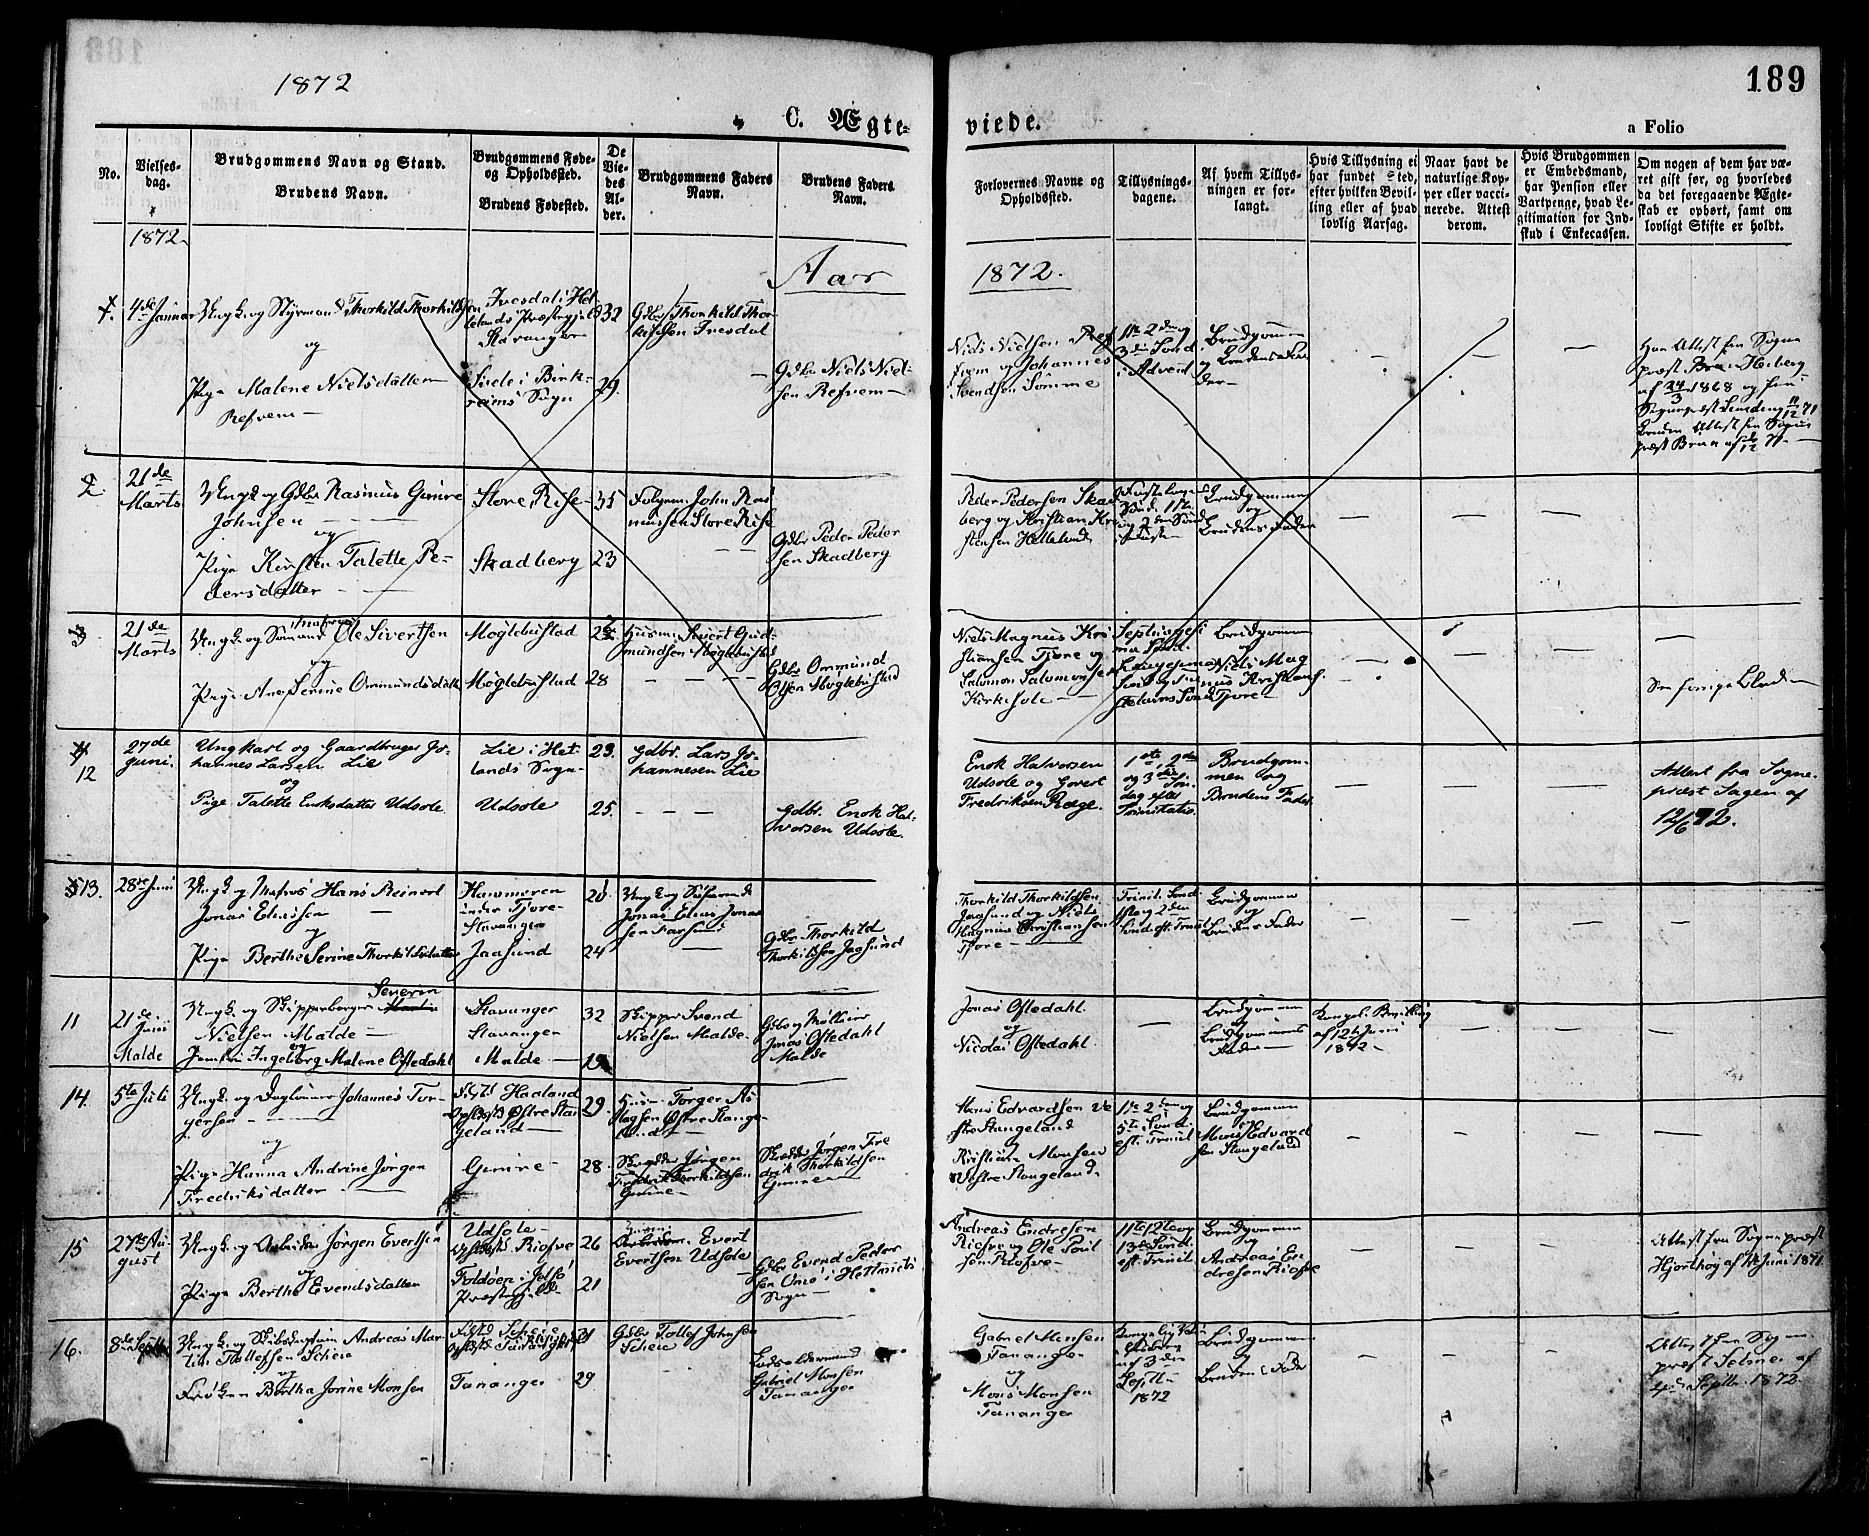 1872
189
C. Ægte-
viede.
a Folio
No.
Vielses-
dag.
Brudgommens Navn og Stand.
Brudens Navn.
Brudgommens Føde-
og Opholdssted.
Brudens Fødested.
De
Vie-
des
Al-
der.
Brudgommens Faders
Navn.
Brudens Faders
Navn.
Forlovernes Navne og
Opholdssted.
Tillysnings-
dagene.
Af hvem Tillys-
ningen er for-
langt.
Hvis Tillysning ei
har fundet Sted,
efter hvilken Bevil-
ling eller af hvad
lovlig Aarsag.
Naar havt de
naturlige Kop-
per eller vacci-
nerede. Attest
derom.
Hvis Brudgommen
er Embedsmand,
har Pension eller
Vartpenge, hvad Le-
gitimation for Ind-
skud i Enkecassen.
Om nogen af dem har væ-
ret gift før, og hvorledes
da det foregaaende Ægte-
skab er ophørt, samt om
lovligt Skifte er holdt.
1872
Aar
1872.
1.
4de Januar
Ungk. og Styrmand Thorkild Thorkildsen
og
Pige Malene Nielsdatter
Refvem
Tvesdal i Het-
lands Præstegjeld
Stavanger
i Birk-
reims Sogn
32
29.
Gdbr Thorkild Thor-
kildsen Tvesdal
Gdbr Niels Niel-
sen Refvem
Niels Nielsen Ref
svem og Johannes
Svendsen Sømme
1ste 2den og
3die Sønd
i Advent
Brudgommen
og Brudens Fa-
der
præst Bru i Heiberg
af 24/3 1868 og fra
11/12 71
Bruden Attest fra Sogne
præst Brun af
2
21de
Marts
Ungk og Gdbr Rasmus Gimre
Johnsen
og
Pige Kirsten Talette Pe-
dersdatter
Store Rise
Skadberg
35
23
John Ras
mussen Store Rise
Gdbr Peder Peder
sen Skadberg
Peder Pedersen Skad
berg og Kristian Kri
stensen Hellelund
Brudgommen
og
Brudens Fader
3
21de
Marts
Ungk. og Sømand Ole Sivertsen
og
Pige Ane Serine Ommundsdatter
Møglebustad
Møglebustad
28
Husm. Sivert Gud-
mundsen Møglebustad
Gdbr Ommund
Olsen Møglebustad
Niels Magnus Kri
stiansen Tjore og
Salomon Salomonsen
Kirkesole
Septuagesi
ma Sønd.
Brudgommen
og
Niels Mag
nus Kristians.
Tjore
Se forrige Blad
4
12
27de
Juni.
Ungkarl og Gaardbruger Jo-
hannes Larsen Lie
og
Pige Talette Enoksdatter Udsole
Lie i Het-
lands Sogn
Udsole
23.
25.
Gdbr. Lars Jo-
hannesen Lie
Gdbr. Enok Hal-
vorsen Udsole.
Enok Halvorsen
Udsole og Govert
Fredriksen Ræge.
1ste, 2den
og 3die Søn-
dag efter
Trinitatis.
Brudgom-
men og
Brudens Fader
Attest fra Sogne-
præst Sagen af
12/6 72.
5 13.
28de Juni
Ungk og Matros Hans Reinert
Jonas Eliassen
og
Pige Berthe Serine Thorkildsdatter
Hammeren
under Tjore
Stavanger
Jaasund
20.
24
Jonas Elias Jonas
sen Farsund
Gdbr Thorkild
Thorkildsen Jaasund
Thorkild Thorkildsen
Jaasund og Niels
Magnus Christiansen
Tjore
Trinit. Sønd.
1ste og 2den
Sønd. eft. Trinit
Brudgommen
og
Brudens Fader
11
21de
Juni
Malde
Severin
Ungk. og Skipperborger Martin
Nielsen Malde
og
Jomfru Ingeborg Malene Oftedahl
Stavanger
Stavanger
Malde
32
19
Skipper Svend
Nielsen Malde
Gdbr og Møller
Jonas Oftedahl
Malde
Jonas Oftedahl
og
Nicolai Oftedahl.
Brudgommen
og
Brudgommens
Fader
Kongel. Bevilling
af 12te Juni
1872
14.
5te Juli
Ungk. og Dagleiner Johannes Tor-
gersen
og
Pige Hanna Andrine Jørgen
Fredriksdatter
Født Haaland
Opholdst. Østre Stan
geland
Gimre
29
28.
Husm. Torger As
lagsen Østre Stange-
land
Skrædder Jørgen
Fredrik Thorkildsen
Gimre
Skrædder Jørgen Fre
drik Thorkildsen
Gimre
Mons Edvardsen Ve
stre Stangeland
Kristian Monsen
Vestre Stangeland
1ste 2den og
5te Sønd.
eft. Trinit
Brudgommen
og
Mons Edvard
sen Stangeland
15
27de Au-
gust
Ungk. og Arbeider Jørgen Evertsen
og
Pige Berthe Evendsdatter
Udsole
Opholdst. Risfve
Foldøen i Jelsø
Præstegjeld
26
21
Husm.
Arbeider Evert
Evertsen Udsole
Gdbr Evend Peder
sen Omø i Hettnæs
Sogn
Andreas Endresen
Risfve og Ole Poul
sen Risfve
11te 12te og
13de Sønd
eft. Trinit
Brudgommen
og
Andreas En-
dresen Risfve
Attest fra Sognepræst
Hjorthøy af Juni 1871
16.
8de Septb
Ungk. og Andreas Mar
tin Tollefsen Scheie
og
Frøken Bertha Jorine Monsen
Født Scheie
Tananger
29
Gdbr Tollef Johnsen
Scheie
Gabriel Monsen
Tananger
Gabriel Monsen
Tananger
og
Mons Monsen
Tananger
af 3den
Septbr
1872
Brudgommen
og
Brudens Fader
Attest fra Sogne
præst Selmer af
4de Septbr. 1872.